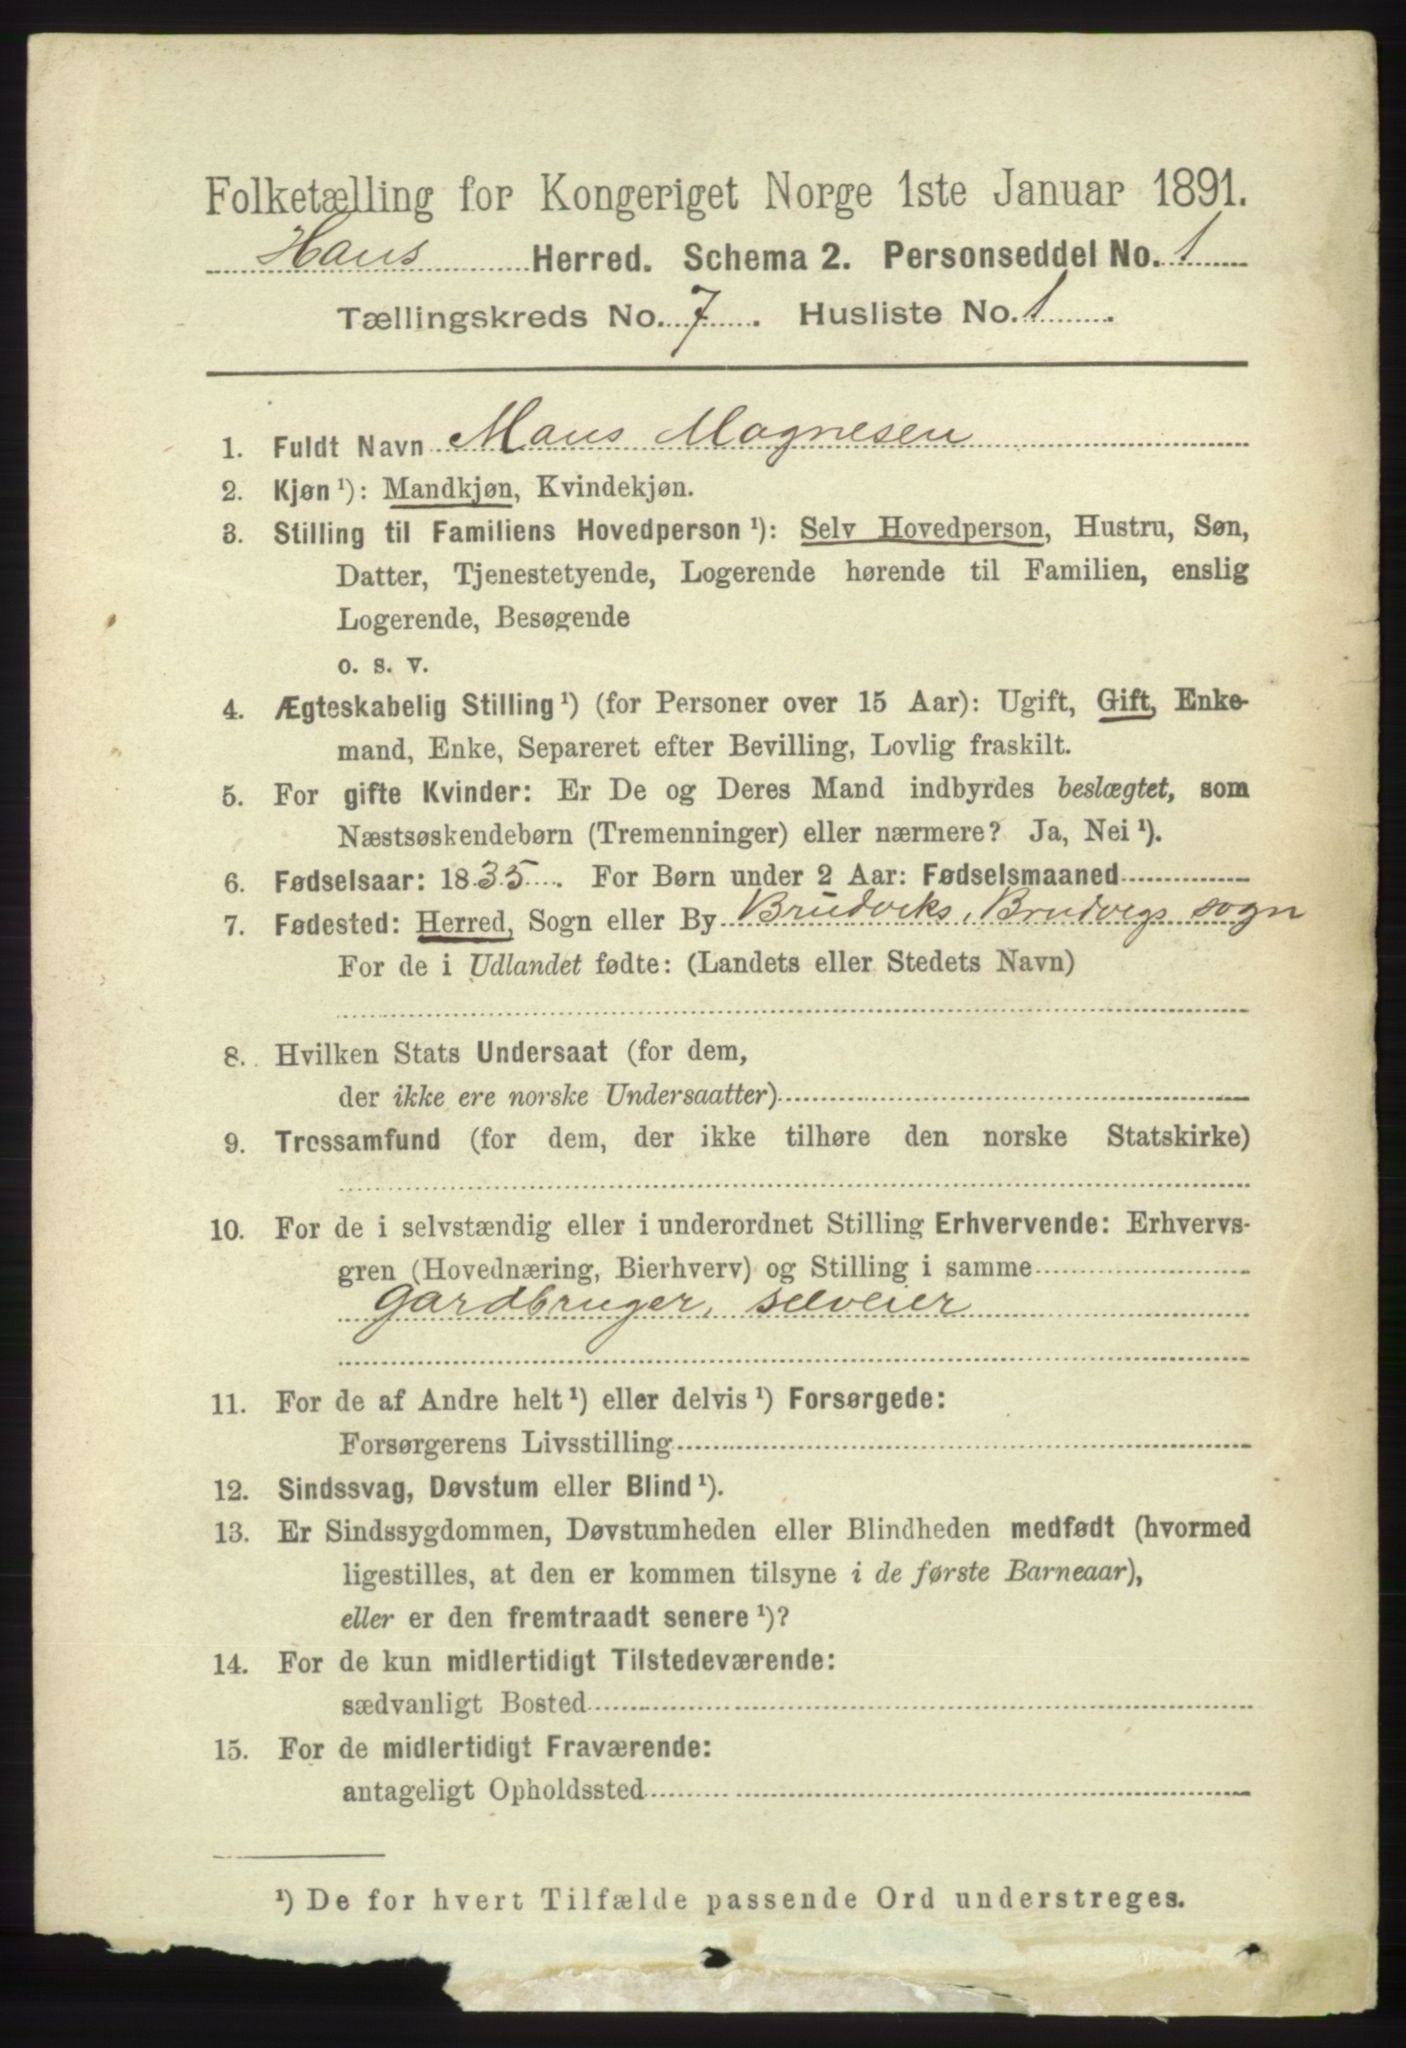 Folketælling for Kongeriget Norge 1ste Januar 1891.
Haus Herred. Schema 2. Personseddel No. 1
Tællingskreds No. 7. Husliste No. 1.
1. Fuldt Navn Mons Magnesen
2. Kjøn¹): Mandkjøn, Kvindekjøn.
3. Stilling til Familiens Hovedperson¹): Selv Hovedperson, Hustru, Søn,
Datter, Tjenestetyende, Logerende hørende til Familien, enslig
Logerende, Besøgende
o. s. v.
4. Ægteskabelig Stilling¹) (for Personer over 15 Aar): Ugift, Gift, Enke-
mand, Enke, Separeret efter Bevilling, Lovlig fraskilt.
5. For gifte Kvinder: Er De og Deres Mand indbyrdes beslægtet, som
Næstsøskendebørn (Tremenninger) eller nærmere? Ja, Nei¹).
6. Fødselsaar: 1835. For Børn under 2 Aar: Fødselsmaaned
7. Fødested: Herred, Sogn eller By Brudviks, Brudvigs sogn
For de i Udlandet fødte: (Landets eller Stedets Navn)
8. Hvilken Stats Undersaat (for dem,
der ikke ere norske Undersaatter)
9. Trossamfund (for dem, der ikke tilhøre den norske Statskirke)
10. For de i selvstændig eller i underordnet Stilling Erhvervende: Erhvervs-
gren (Hovednæring, Bierhverv) og Stilling i samme
Gardbruger, selveier
11. For de af Andre helt¹) eller delvis¹) Forsørgede:
Forsørgerens Livsstilling
12. Sindssvag, Døvstum eller Blind¹).
13. Er Sindssygdommen, Døvstumheden eller Blindheden medfødt (hvormed
ligestilles, at den er kommen tilsyne i de første Barneaar),
eller er den fremtraadt senere¹)?
14. For de kun midlertidigt Tilstedeværende:
sædvanligt Bosted
15. For de midlertidigt Fraværende:
antageligt Opholdssted
¹) De for hvert Tilfælde passende Ord understreges.